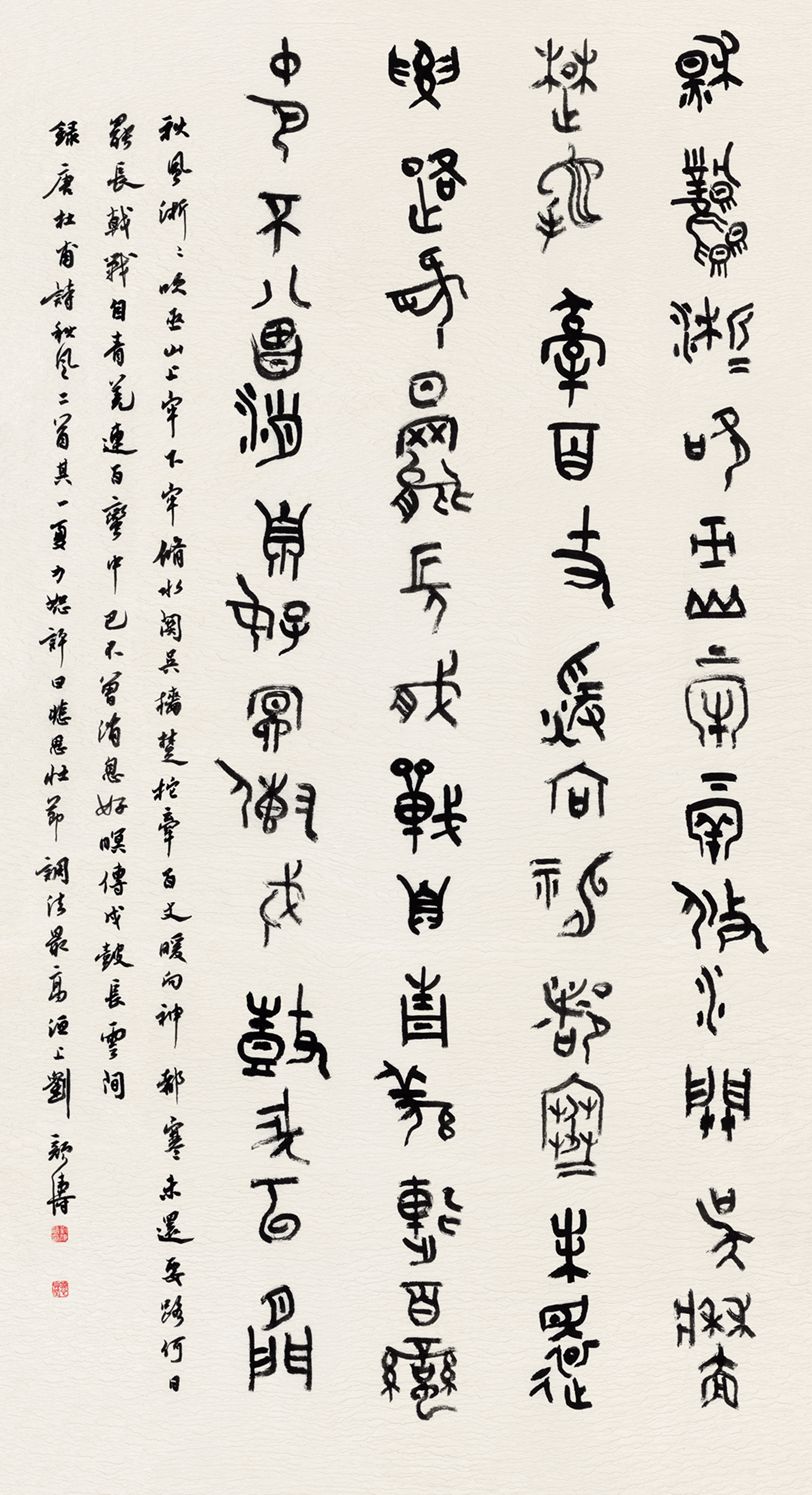 秋風淅〻吹巫山上牢下牢脩水關吳檣
楚柁牽百丈煖向神都寒未還
要路何日罷長戟戰自青羌連百蠻
中巴不曾消息好暝傳戍鼓長雲間
秋風淅〻吹巫山上牢下牢脩水關吳檣楚柁牽百丈暖向神都寒未還要路何日
罷長戟戰自青羌連百蠻中巴不曾消息好暝傳戍鼓長雲間
錄唐杜甫詩秋風二首其一夏力恕評曰悲思壯節調法最高洹上劉顏濤